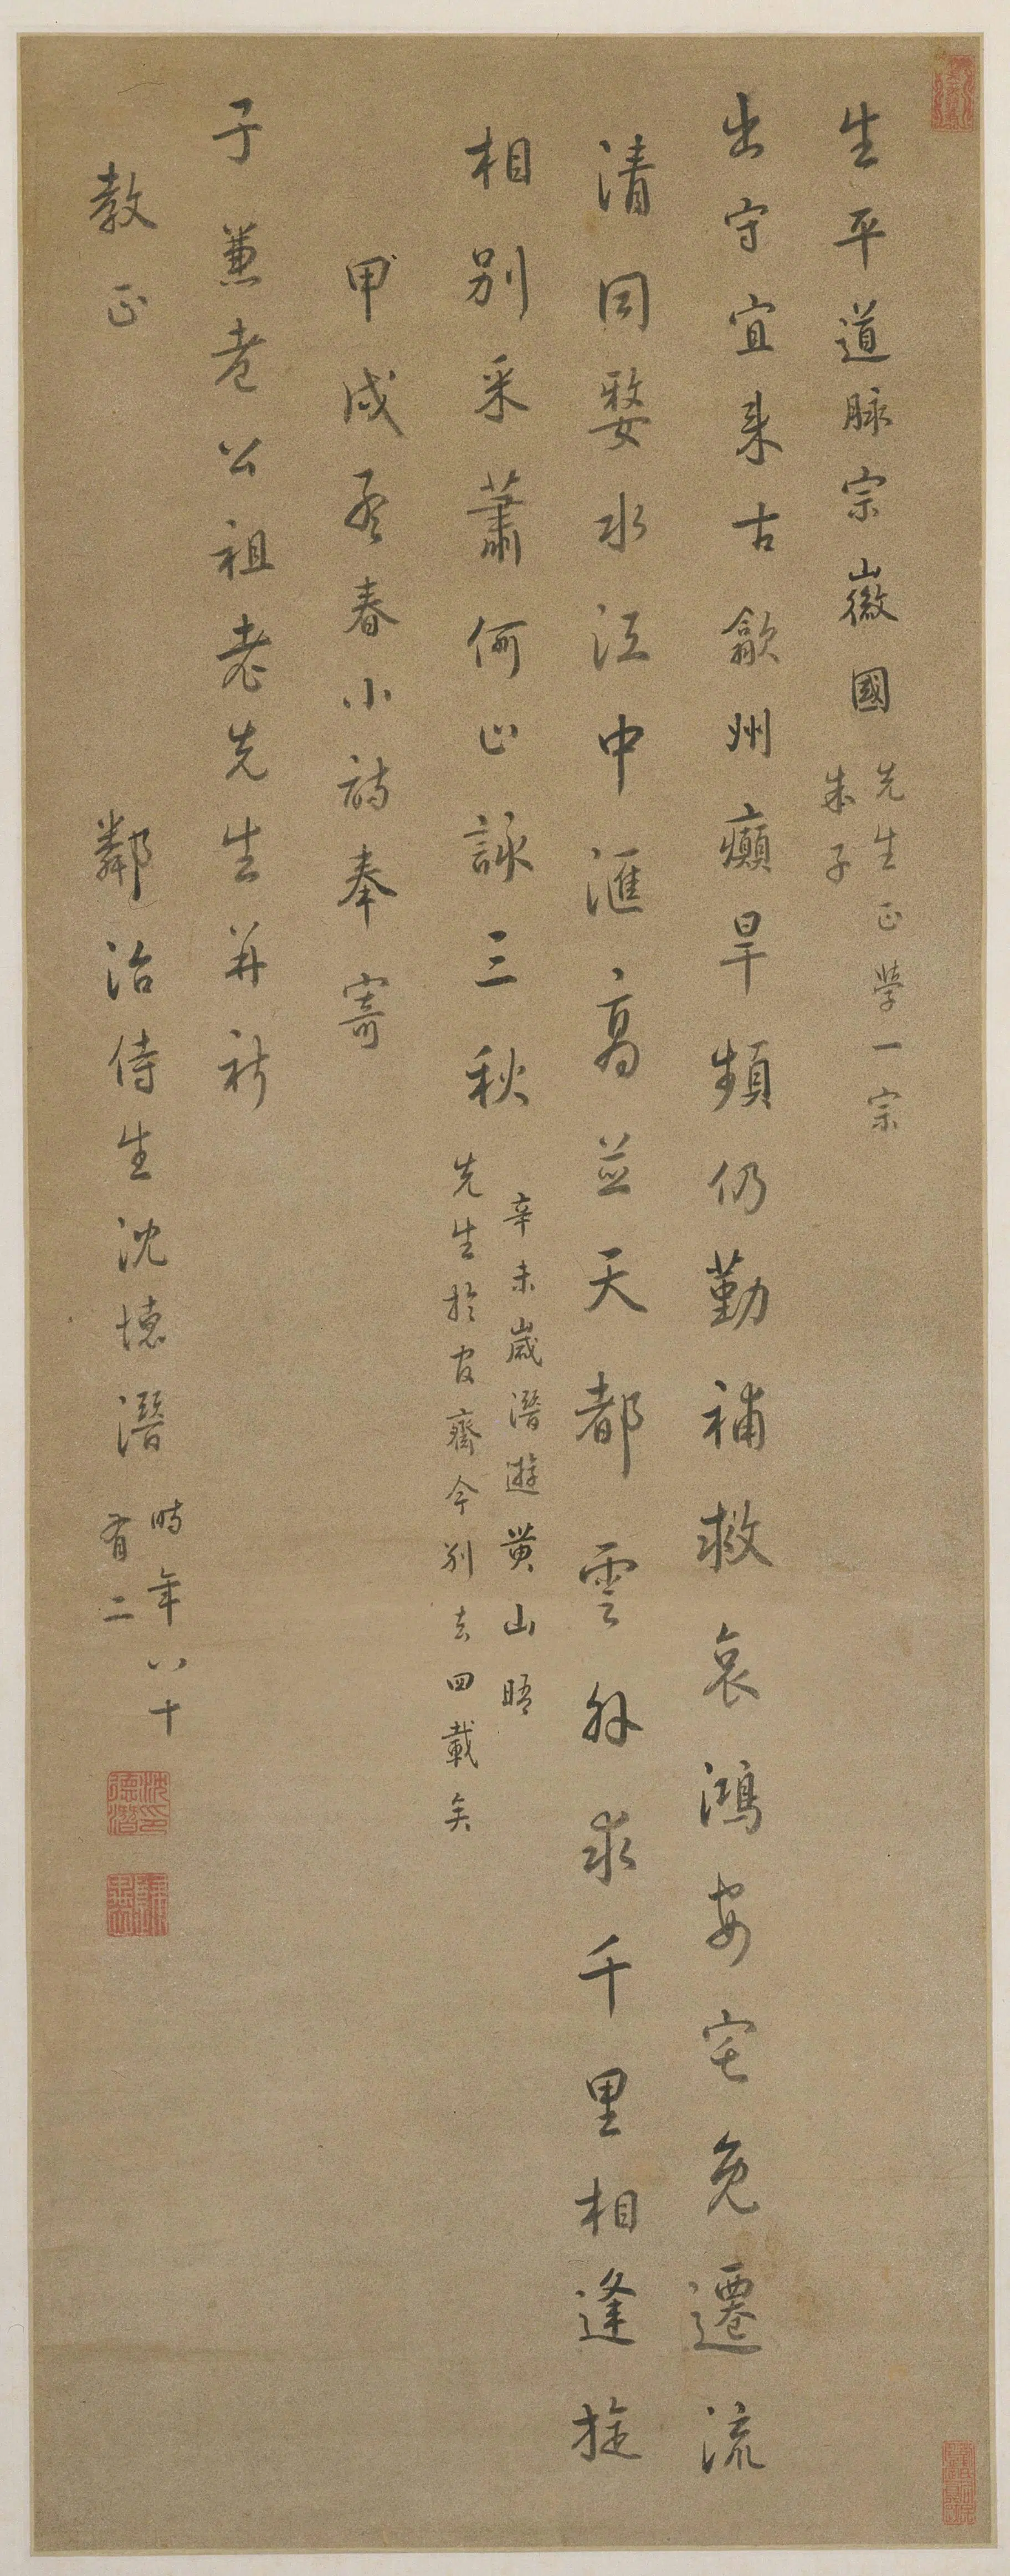 生平道脉宗徽國
先生正學一宗
朱子
出守宜来古歙州癲旱頻仍勤補救哀鴻安宅免遷流
清同婺水江中滙高並天都雲外求千里相逢旋
相別采蕭何止詠三秋
辛未歲潛遊黃山晤
先生於官齋今別去四載矣
甲戌孟春小詩奉寄
于兼老公祖老先生并祈
教正
鄰治侍生沈德潛
時年八十
有二
沈印德潛